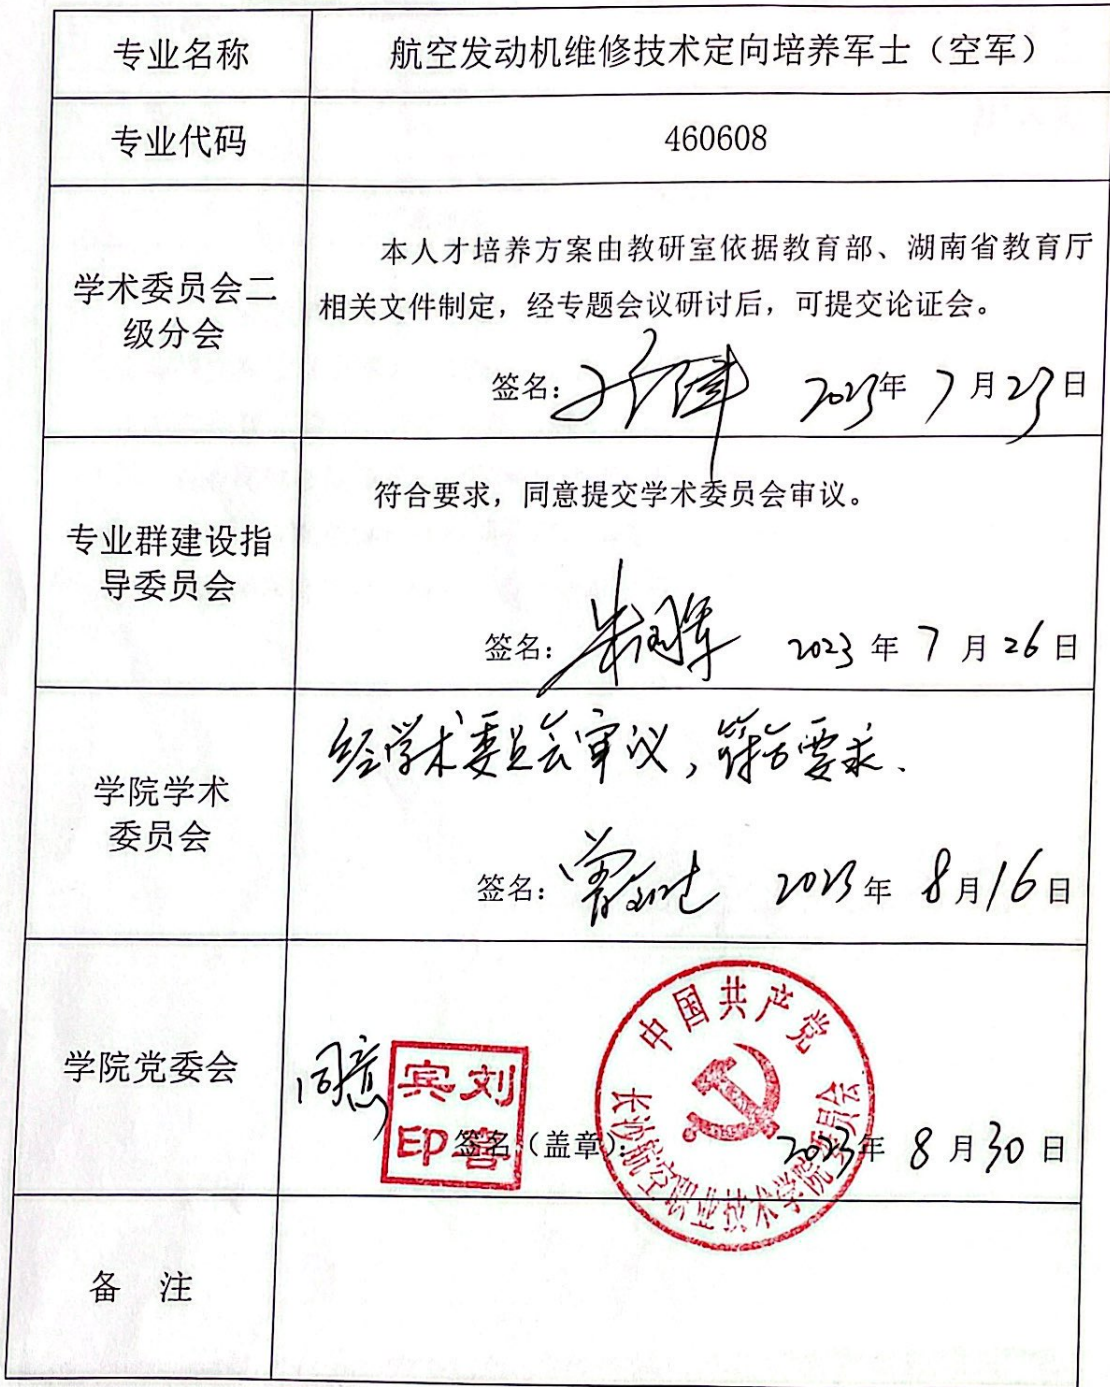 专业名称
航空发动机维修技术定向培养军士（空军）
专业代码
460608
学术委员会二
级分会
本人才培养方案由教研室依据教育部、湖南省教育厅
相关文件制定，经专题会议研讨后，可提交论证会。
签名： 2023年 7 月 27 日
专业群建设指
导委员会
符合要求，同意提交学术委员会审议。
签名： 2023 年 7 月 26 日
学院学术
委员会
经学术委员会审议，符合要求.
签名： 2023 年 8 月 16 日
学院党委会
同意
刘
宾
印
签名（盖章）： 2023年 8 月 30 日
中国共产党
长沙航空职业技术学院委员会
备 注